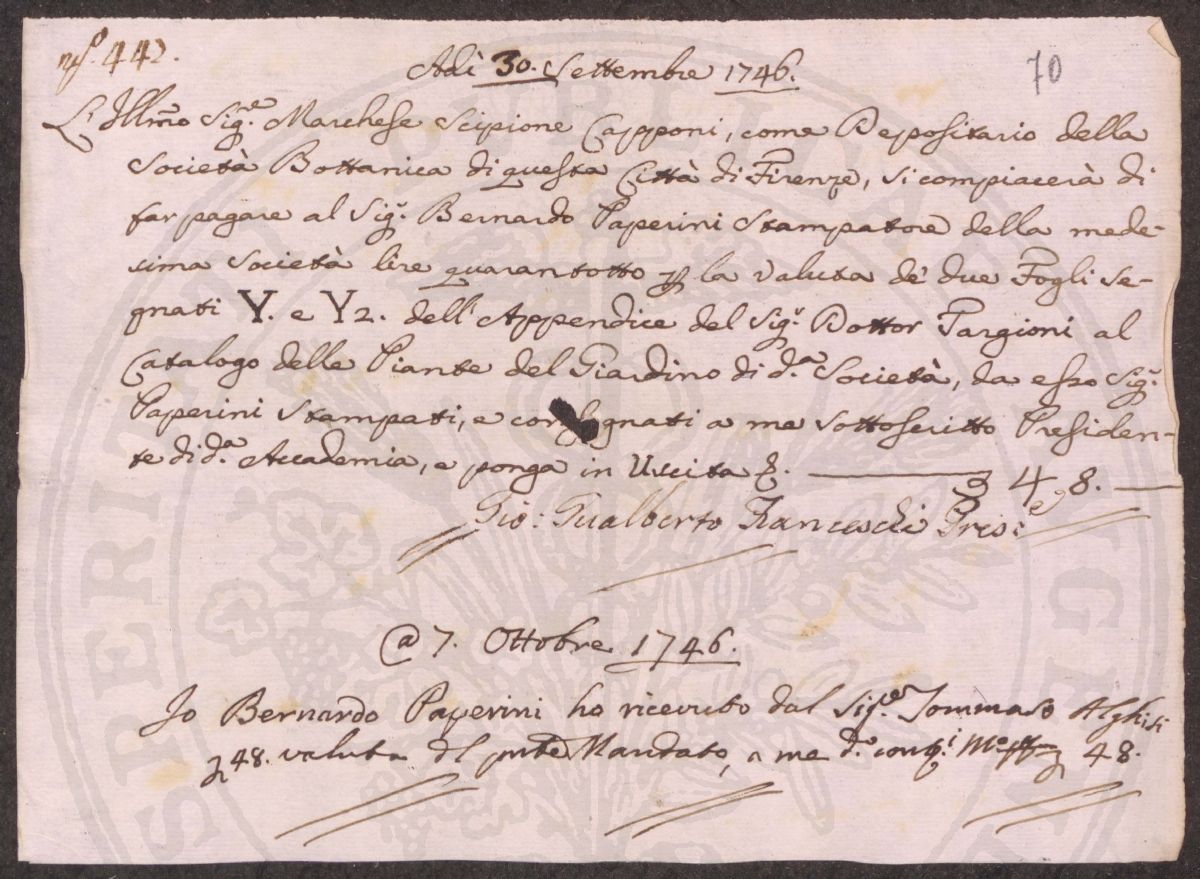 nº. 442.
Adì 30. Settembre 1746.
70
L'Illmo Sigr.e Marchese Scipione Capponi, come Depositario della
Società Bottanica di questa Città di Firenze, si compiacerà di
far pagare al Sigr. Bernardo Paperini Stampatore della mede-
sima Società lire quarantotto p la valuta de' due Fogli se-
gnati Y. e Y2. dell'Appendice del Sigr. Dottor Targioni al
Catalogo delle Piante del Giardino di d.a Società, da esso Sigr.
Paperini Stampati, e consegnati a me sottoscritto Presiden-
te di d.a Accademia, e ponga in Uscita 48.
Gio: Gualberto Franceschi Pres:
@ 7. Ottobre 1746.
Io Bernardo Paperini ho ricevuto dal Sigr.e Tommaso Alghisi
48. valuta del pnte Mandato, a me d.o 48.
SPERIMENTA PUBLICA